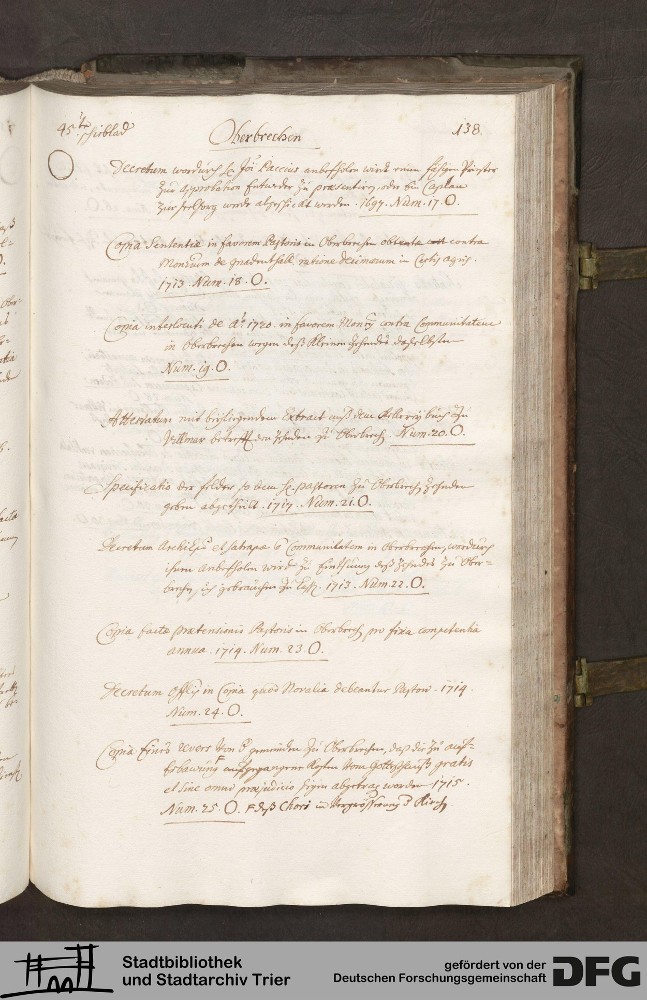 45te schieblad Oberbrechen 138
O
Decretum wordurch Hr. Paccius anbefohlen wird einen Priester
zur approbation Entweder zu praesentiren, oder ein Caplan
zur werde abgeschickt werden. 1697. Num. 17. O.
Copia Sententiae in favorem Pastoris in Oberbrechen obtenta contra
Monrium de gnadenthall ratione decimarum in Certis agris.
1713. Num. 18. O.
Copia interlocuti de Ao 1720. in favorem Monry contra Communitatem
in Oberbrechen wegen deß Kleinen Zehnden daselbsten
Num. 19. O.
Attestatum mit beyliegendem Extract auß dem Kellerey buch zu
Villmar betreff. den Zehnden zu Oberbrech. Num. 20. O.
Specificatio der felder so dem Hr. pastoren zu Oberbrech. Zehnden
geben abgetheilt. 1717. Num. 21. O.
Decretum Archiepi et satrapae Communitatem in Oberbrechen, wordurch
ihnen anbefohlen wird zu Einthuung deß Zehndes zu Ober-
brechen, sich gebrauchen zu laß. 1713. Num. 22. O.
Copia factae praetensionis Pastoris in Oberbrech pro fixa competentia
annua. 1714. Num. 23. O.
Decretum Officy in Copia quod Novalia debeantur Pastori. 1714.
Num. 24. O.
Copia Eines revers von der gemeinden zu Oberbrechen, daß die zu auf-
Erbawung aufgegangene Kosten vom Gotteshauß gratis
et sine omni praejudicio seyen abgetrag worden 1715.
Num. 25. O. deß Chors und Vergrösserung der Kirch
Stadtbibliothek
und Stadtarchiv Trier
gefördert von der
Deutschen Forschungsgemeinschaft
DFG